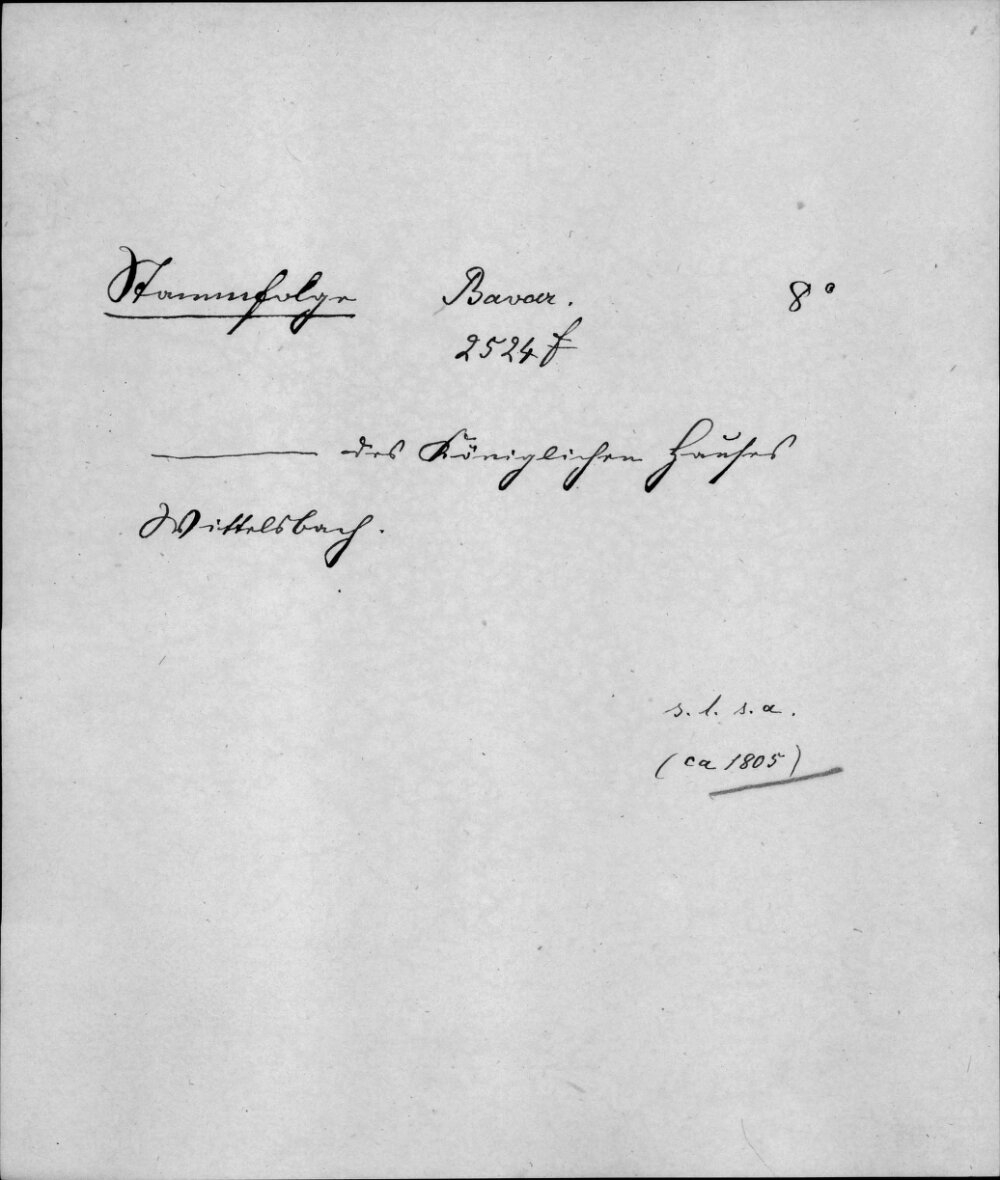 Stammfolge Bavar. 8°
2524 f
——— des Königlichen Hauses
Wittelsbach.
s. l. s. a.
(ca 1805)